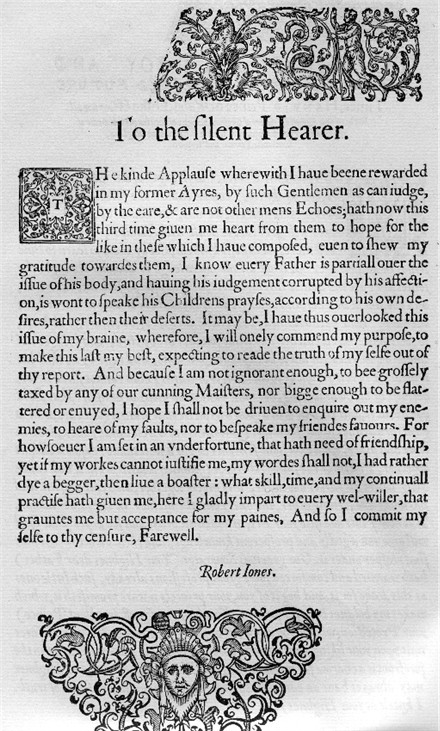 To the ſilent Hearer.
THe kinde Applauſe wherewith I haue beene rewarded
in my former Ayres, by ſuch Gentlemen as can iudge,
by the eare,& are not other mens Echoes;hath now this
third time giuen me heart from them to hope for the
like in theſe which I haue compoſed, euen to ſhew my
gratitude towardes them, I know euery Father is partiall ouer the
iſſue of his body,and hauing his iudgement corrupted by his affecti-
on,is wont to ſpeake his Childrens prayſes,according to his own de-
ſires,rather then their deſerts. It may be,I haue thus ouerlooked this
iſſue of my braine, wherefore, I will onely commend my purpoſe,to
make this laſt my beſt, expecting to reade the truth of my ſelfe out of
thy report. And becauſe I am not ignorant enough, to bee groſſely
taxed by any of our cunning Maiſters, nor bigge enough to be flat-
tered or enuyed, I hope I ſhall not be driuen to enquire out my ene-
mies, to heare of my faults, nor to beſpeake my friendes fauours. For
howſoeuer I am ſet in an vnderfortune, that hath need of friendſhip,
yet if my workes cannot iuſtifie me,my wordes ſhall not,I had rather
dye a begger,then liue a boaſter : what skill,time,and my continuall
practiſe hath giuen me,here I gladly impart to euery wel-willer,that
grauntes me but acceptance for my paines, And ſo I commit my
ſelfe to thy cenſure, Farewell.
Robert Iones.